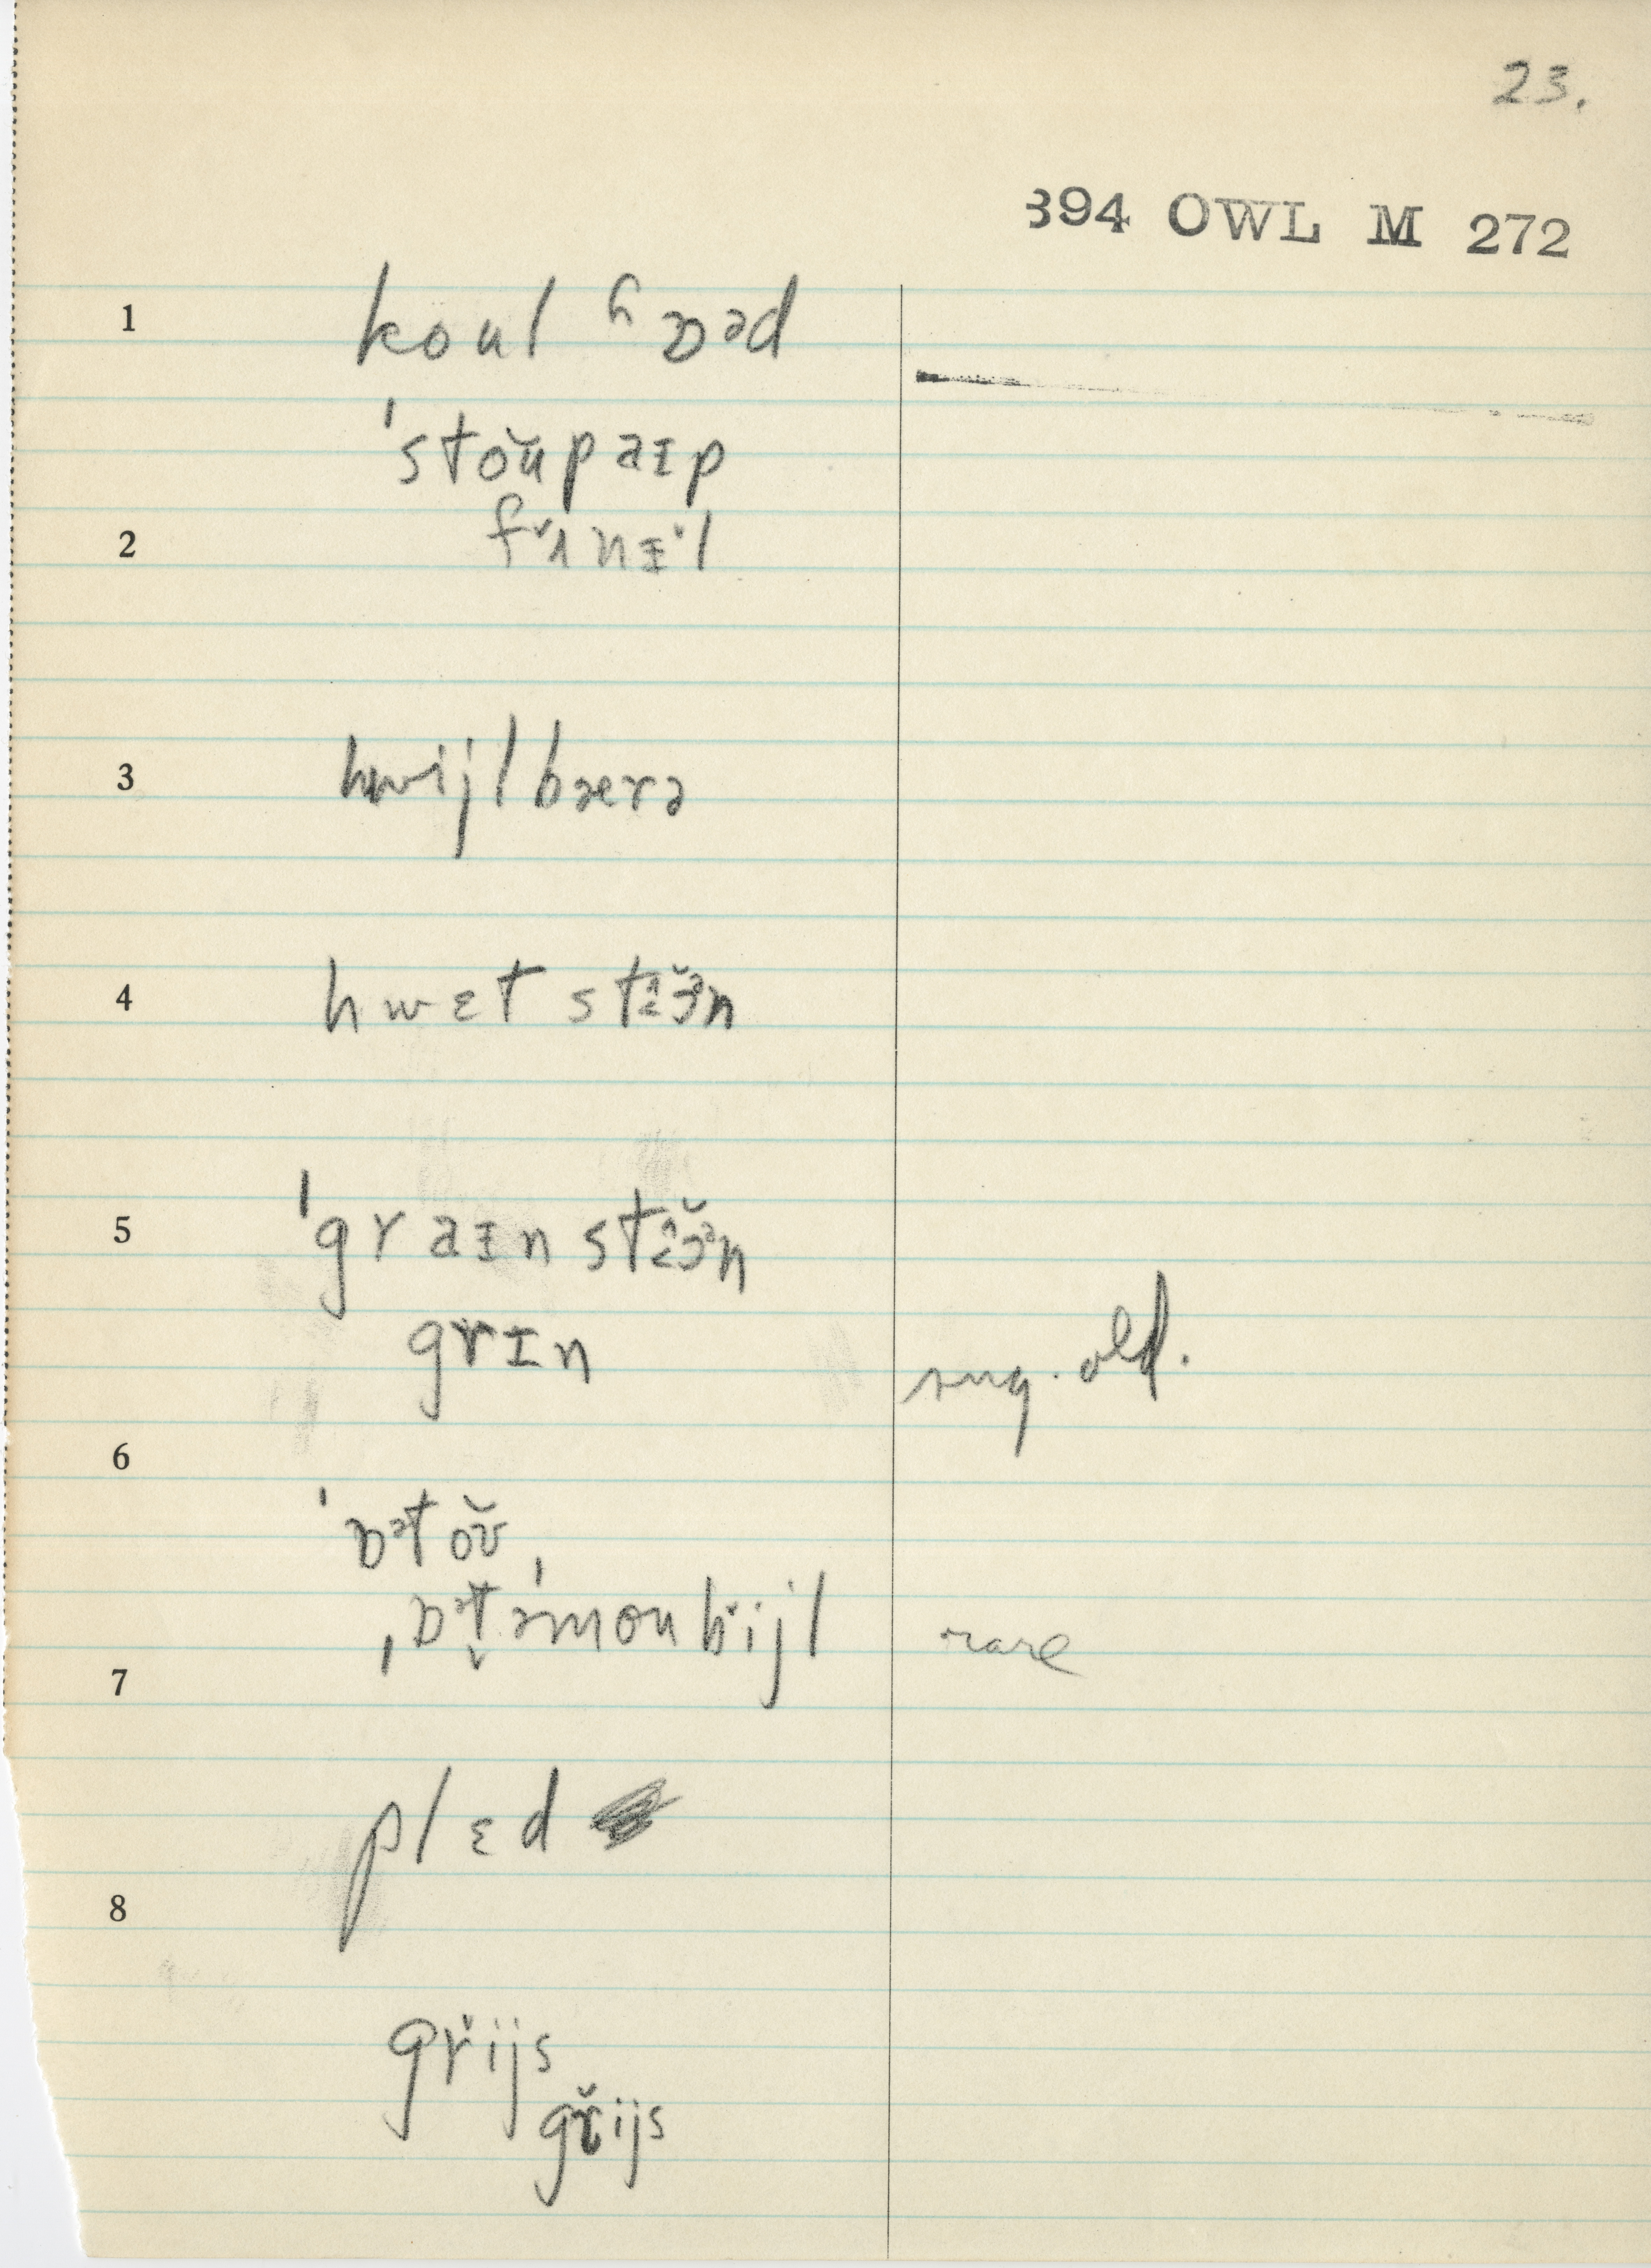 23.
394 OWL M 272
1 koul ɦɒəd
ˈstoŭpaɪp
2 fʌ̆nɪl
3 hwijlbærə
4 hwɛt stɛ̆ɜ̆n
5 ˈgraɪn stɛ̆ɜ̆n
grɪn sug. old.
6
ˈɒətoŭ
ˌɒət̬əmoubijl rare
7
plɛd
8
grijs
grijs